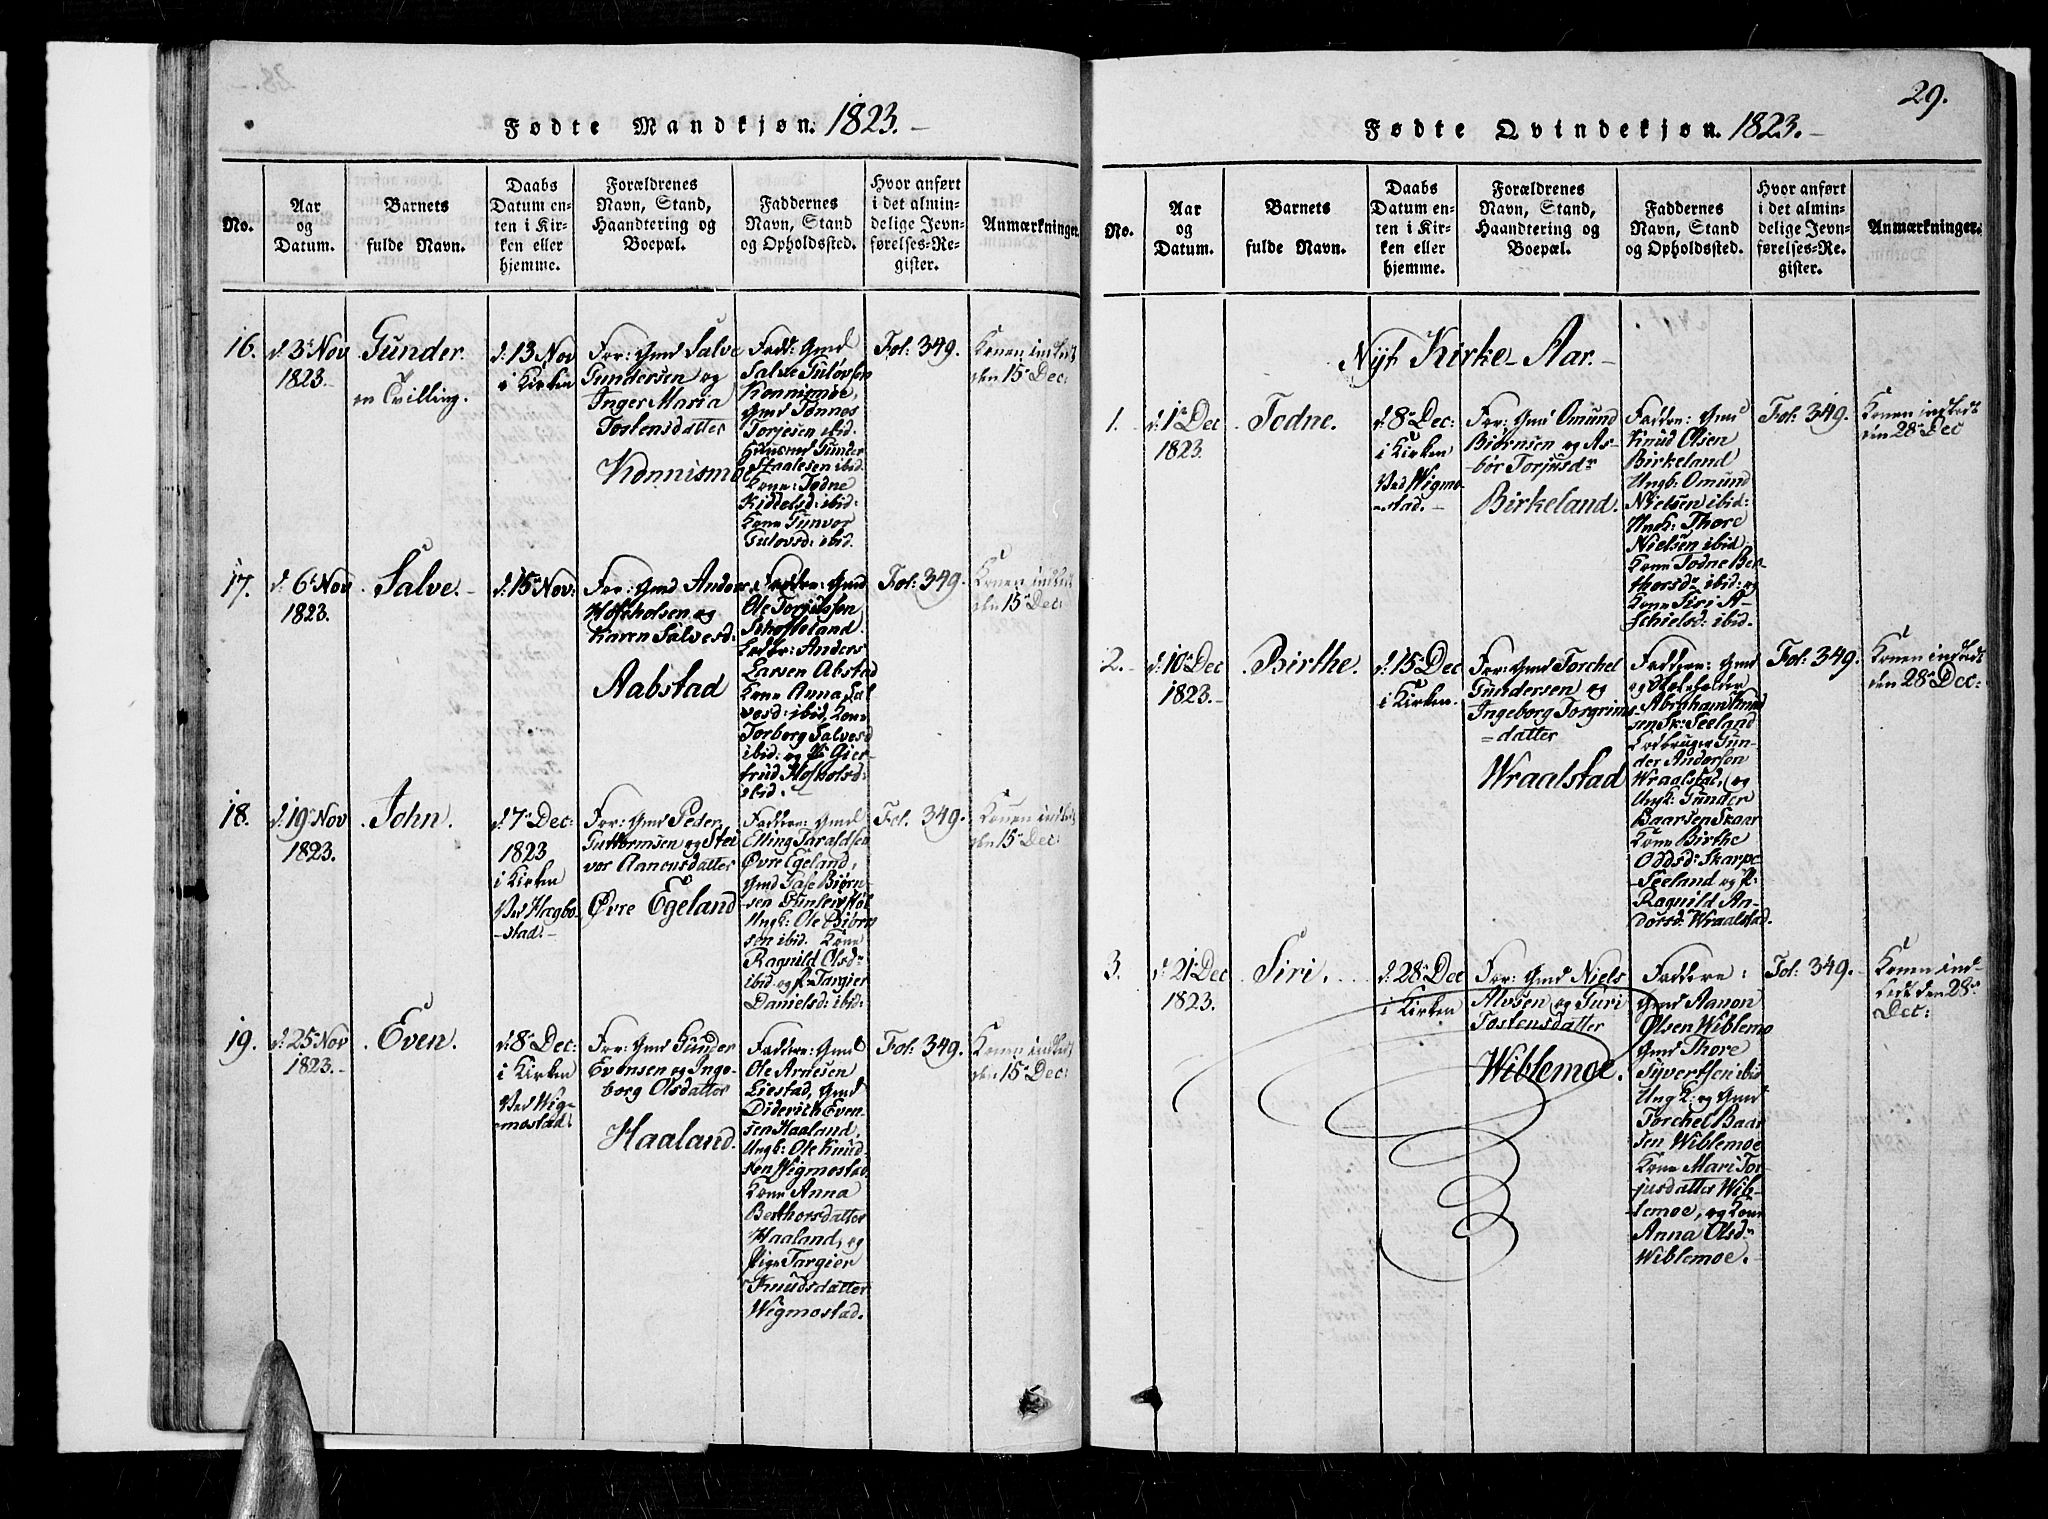 28.
Fødte Mandkjøn. 1823.
No.
Aar
og
Datum.
Barnets
fulde Navn.
Daabs
Datum en-
ten i Kir-
ken eller
hjemme.
Forældrenes
Navn, Stand,
Haandtering og
Boepæl.
Faddernes
Navn, Stand
og Opholdssted.
Hvor anført
i det almin-
delige Jevn-
førelses-Re-
gister.
Anmærkninger.
16.
d. 3. Nov
1823.
Gunder.
en Tvilling.
d. 13 Nov
i Kirken
For: Gmd Salve
Gundersen og
Inger Maria
Tostensdatter
Konnismo
Fadd: Gmd
Salve Gulovsen
Konnismoe,
Gmd Tønnes
Torjesen ibid.
Huusmd Gunder
Staalesen ibid.
Kone: Todne
Kiddelsd: ibid:
Kone Gunvor
Gulovsd: ibid.
Fol: 349.
Konen indledt
den 15 Dec:
17.
d. 6. Nov
1823.
Salve.
d. 15 Nov:
For: Gmd Anders
Hofsholsen og
Karen Salvesd:
Aabstad
Faddre: Gmd
Ole Torjussen
Schofteland.
Ledbr: Anders
Larsen Abstad
Kone Anna Sal
vesd: ibid, Kone
Torborg Salvesd
ibid: og P: Gier
trud Hofsholsd:
ibid.
Fol: 349.
Konen indledt
den 15 Dec:
18.
d. 19. Nov
1823.
John.
d. 7. Dec:
1823
i Kirken
Ved Hægbo-
stad.
For: Gmd Peder
Guttormsen og Stei
vor Aanensdatter
Øvre Egeland
Faddere: Gmd
Elling Taraldsen
Øvre Egeland,
Gmd Gase Biørn-
sen Gunleivstøl
Ungk: Ole Biørn
sen ibid. Kone
Ragnild Olsdr
ibid og P: Targier
Danielsd: ibid:
Fol. 349.
Konen indledt
den 15 Dec:
19.
d. 25. Nov
1823.
Even.
d. 8. Dec:
i Kirken
Ved Wig-
mostad:
For: Gmd Gunder
Evensen og Inge-
borg Olsdatter
Haaland.
Faddere: Gmd
Ole Arnesen
Liestad, Gmd
Diderich Even
sen Haaland,
Ungk: Ole Knud
sen Wigmostad.
Kone Anna
Berthorsdatter
Haaland, og
Pige Targier
Knudsdatter
Wigmostad.
Fol: 349.
Konen indledt
den 15 Dec:
29.
Fødte Qvindekjøn. 1823.
No.
Aar
og
Datum.
Barnets
fulde Navn.
Daabs
Datum en-
ten i Kir-
ken eller
hjemme.
Forældrenes
Navn, Stand,
Haandtering og
Boepæl.
Faddernes
Navn, Stand
og Opholdssted.
Hvor anført
i det almin-
delige Jevn-
førelses-Re-
gister.
Anmærkninger.
Nyt Kirke-Aar.
1.
d. 1. Dec
1823.
Todne.
d. 8. Dec:
i Kirken
Ved Wigmo-
stad.
For: Gmd Omund
Biørnsen og As-
bør Torjusdr
Birkeland.
Faddre: Gmd
Knud Olsen
Birkeland
Ungk: Omund
Nielsen ibid:
Ungk: Thore
Nielsen ibid
Kone Todne Ber
thorsdr ibid: og
Kone Siri A-
schielsd: ibid.
Fol: 349.
Konen indledt
den 28 Dec
2.
d. 10. Dec
1823.
Birthe.
d. 15 Dec
i Kirken.
For: Gmd Torchel
Gundersen og
Ingeborg Torgrims-
datter
Wraalstad
Faddere: Gmd
og Skoleholder
Abraham Knud
sen Sk: Seeland
Ledbruger Gun-
der Andersen
Wraalstad, og
Ungk: Gunder
Baarsen Skaar
Kone Birthe
Oddsd: Skarpe-
Seeland og P:
Ragnild An-
dorsd: Wraalstad.
Fol: 349.
Konen indledt
den 28 Dec:
3.
d. 21 Dec
1823.
Siri.
d. 28 Dec
i Kirken
For: Gmd Niels
Alvsen og Guri
Tostensdatter
Wiblemoe.
Faddere:
Gmd Aanon
Olsen Wiblemo
Gmd Thore
Syvertsen ibid
Ungk: og Gmd
Torchel Baar
sen Wiblemoe
Kone Mari Tor-
jusdatter Wib-
lemoe, og Kone
Anna Olsdr
Wiblemoe.
Fol: 349.
Konen ind-
ledt den 28.
Dec: